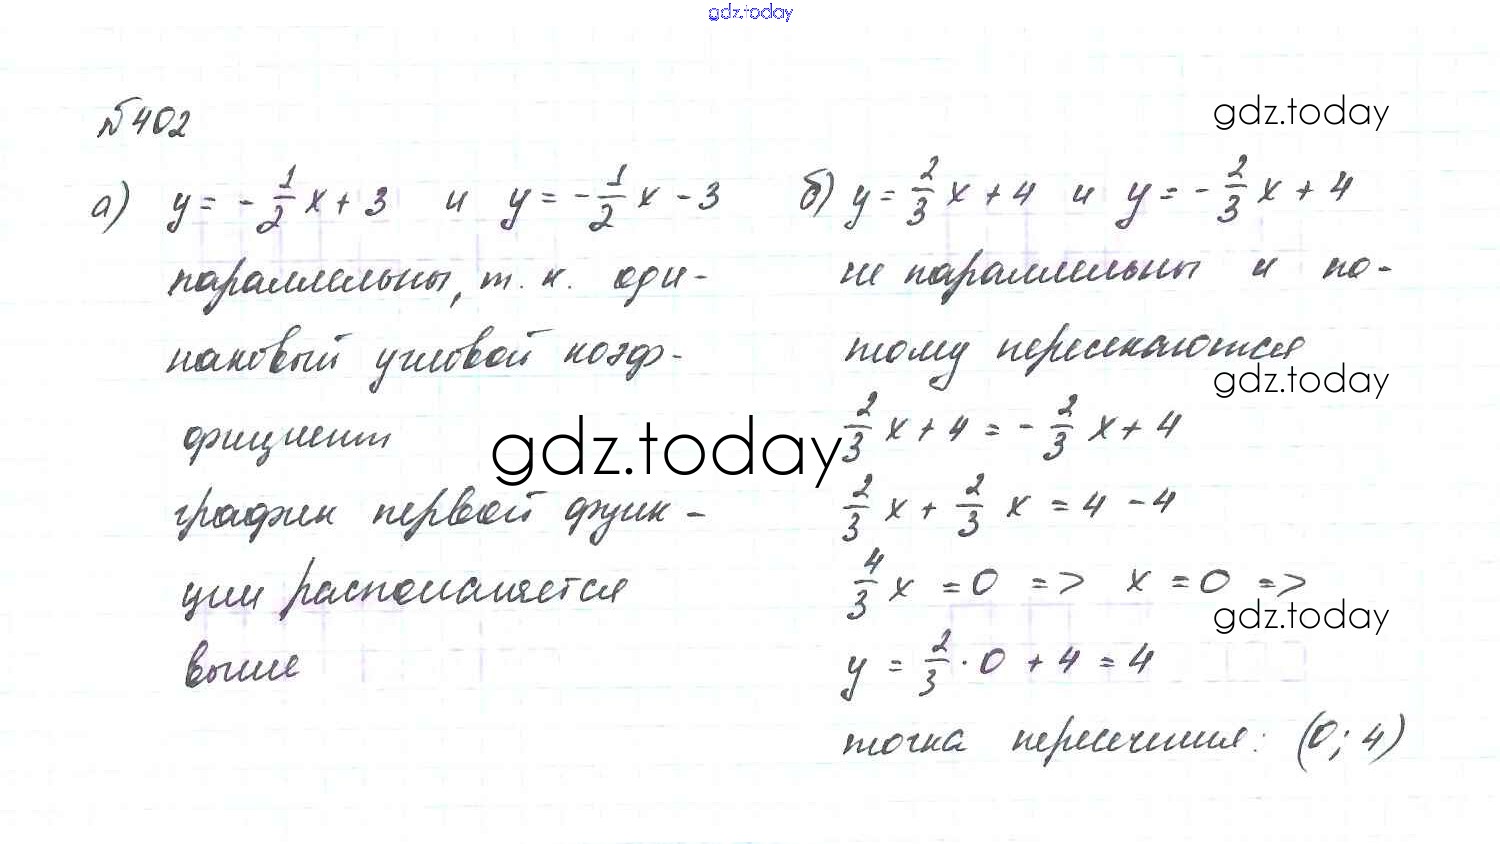 gdz.today
№402
gdz.today
а) y = -1/2 x + 3 и y = -1/2 x - 3
параллельны, т. к. оди-
наковый угловой коэф-
фициент
gdz.today
график первой функ-
ции располагается
выше
б) y = 2/3 x + 4 и y = -2/3 x + 4
не параллельны и по-
тому пересекаются
gdz.today
2/3 x + 4 = -2/3 x + 4
2/3 x + 2/3 x = 4 - 4
4/3 x = 0 => x = 0 =>
gdz.today
y = 2/3 · 0 + 4 = 4
точка пересечения: (0; 4)